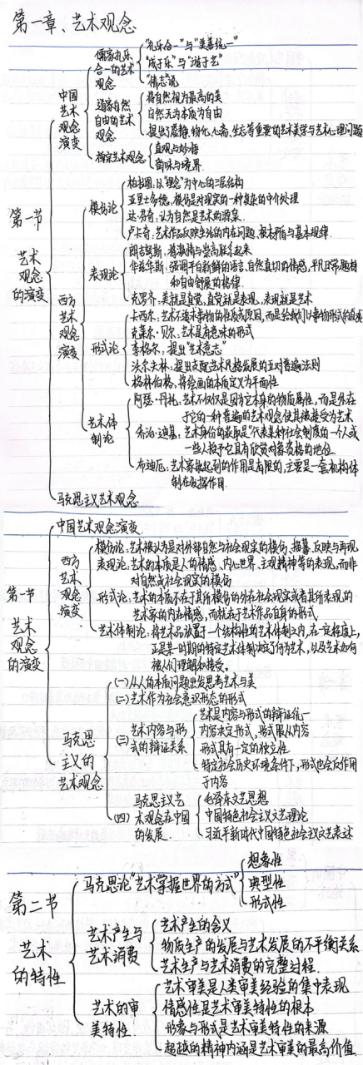 第一章、艺术观念
第一节 艺术观念的演变
中国艺术观念演变
儒家礼乐合一的艺术观念
"礼乐合一"与"美善统一"
"成于乐"与"游于艺"
"情志"说
道家自然自由的艺术观念
将自然视为最高的美
自然无为本质为自由
提出了虚静、物化、心斋、坐忘等重要的艺术美学与艺术心理问题
禅宗艺术观念
直观与妙悟
韵味与境界
西方艺术观念演变
模仿论
柏拉图,以"理念"为中心的三层结构
亚里士多德,模仿是对现实的一种复杂的中介处理
达·芬奇,认为自然是艺术的源泉
卢卡奇,艺术作品反映生活的内在问题、根本矛盾与基本规律
表现论
朗吉弩斯,将激情与崇高联系起来
华兹华斯,强调平白新鲜的语言、自然真切的情感,平凡正常题材和自由舒展的格律
克罗齐,美就是直觉,直觉就是表现,表现就是艺术
形式论
卡西尔,艺术不追求事物的性质或原因,而是给我们以事物形式的直观
克莱尔·贝尔,艺术是有意味的形式
李格尔,提出"艺术意志"
沃尔夫林,提出支配艺术风格发展的五对普遍法则
格林伯格,将绘画的本质定义为平面性
艺术体制论
阿瑟·丹托,艺术不仅仅是因为它本身的物质属性,而是依存于它的一种普遍的艺术观念使其被接受为艺术
乔治·迪基,艺术身份的获取是"代表某种社会制度的一个人或一些人授予它具有欣赏对象资格的地位
布迪厄,艺术家被起到的作用是有限的,主要是一套机构体制在发挥作用
马克思主义艺术观念
第一节 艺术观念的演变
中国艺术观念演变
西方艺术观念演变
模仿论,艺术被认为是对外部自然与社会现实的模仿、描摹、反映与再现
表现论,艺术的本质是人的情感、内心世界、主观精神等的表现,而非对自然或社会现实的模仿
形式论,艺术的本质不在于其所模仿的外在社会现实或者其所表现的艺术家的内在情感,而就在于艺术作品自身的形式
艺术体制论:将艺术品放置于一个结构性的艺术体制之内,在一定程度上,正是某一时期的特定艺术体制决定了何为艺术,以及艺术如何被人们理解和接受。
马克思主义的艺术观念
(一)从人的本质问题出发思考艺术与美
(二)艺术作为社会意识形态的形式
(三)艺术内容与形式的辩证关系
艺术是内容与形式的辩证统一
内容决定形式,形式服从内容
形式具有一定的独立性
特定社会历史环境条件下,形式也会反作用于内容
(四)马克思主义艺术观念在中国的发展.
毛泽东文艺思想
中国特色社会主义文艺理论
习近平新时代中国特色社会主义文艺表述
第二节 艺术的特性
马克思论"艺术掌握世界的方式"
想象性
典型性
形式性
艺术生产与艺术消费
艺术生产的含义
物质生产的发展与艺术发展的不平衡关系
艺术生产与艺术消费的完整过程.
艺术的审美特性.
艺术审美是人类审美经验的集中表现
情感性是艺术审美特性的根本
形象与形式是艺术审美特性的来源
超越的精神内涵是艺术审美的最高价值